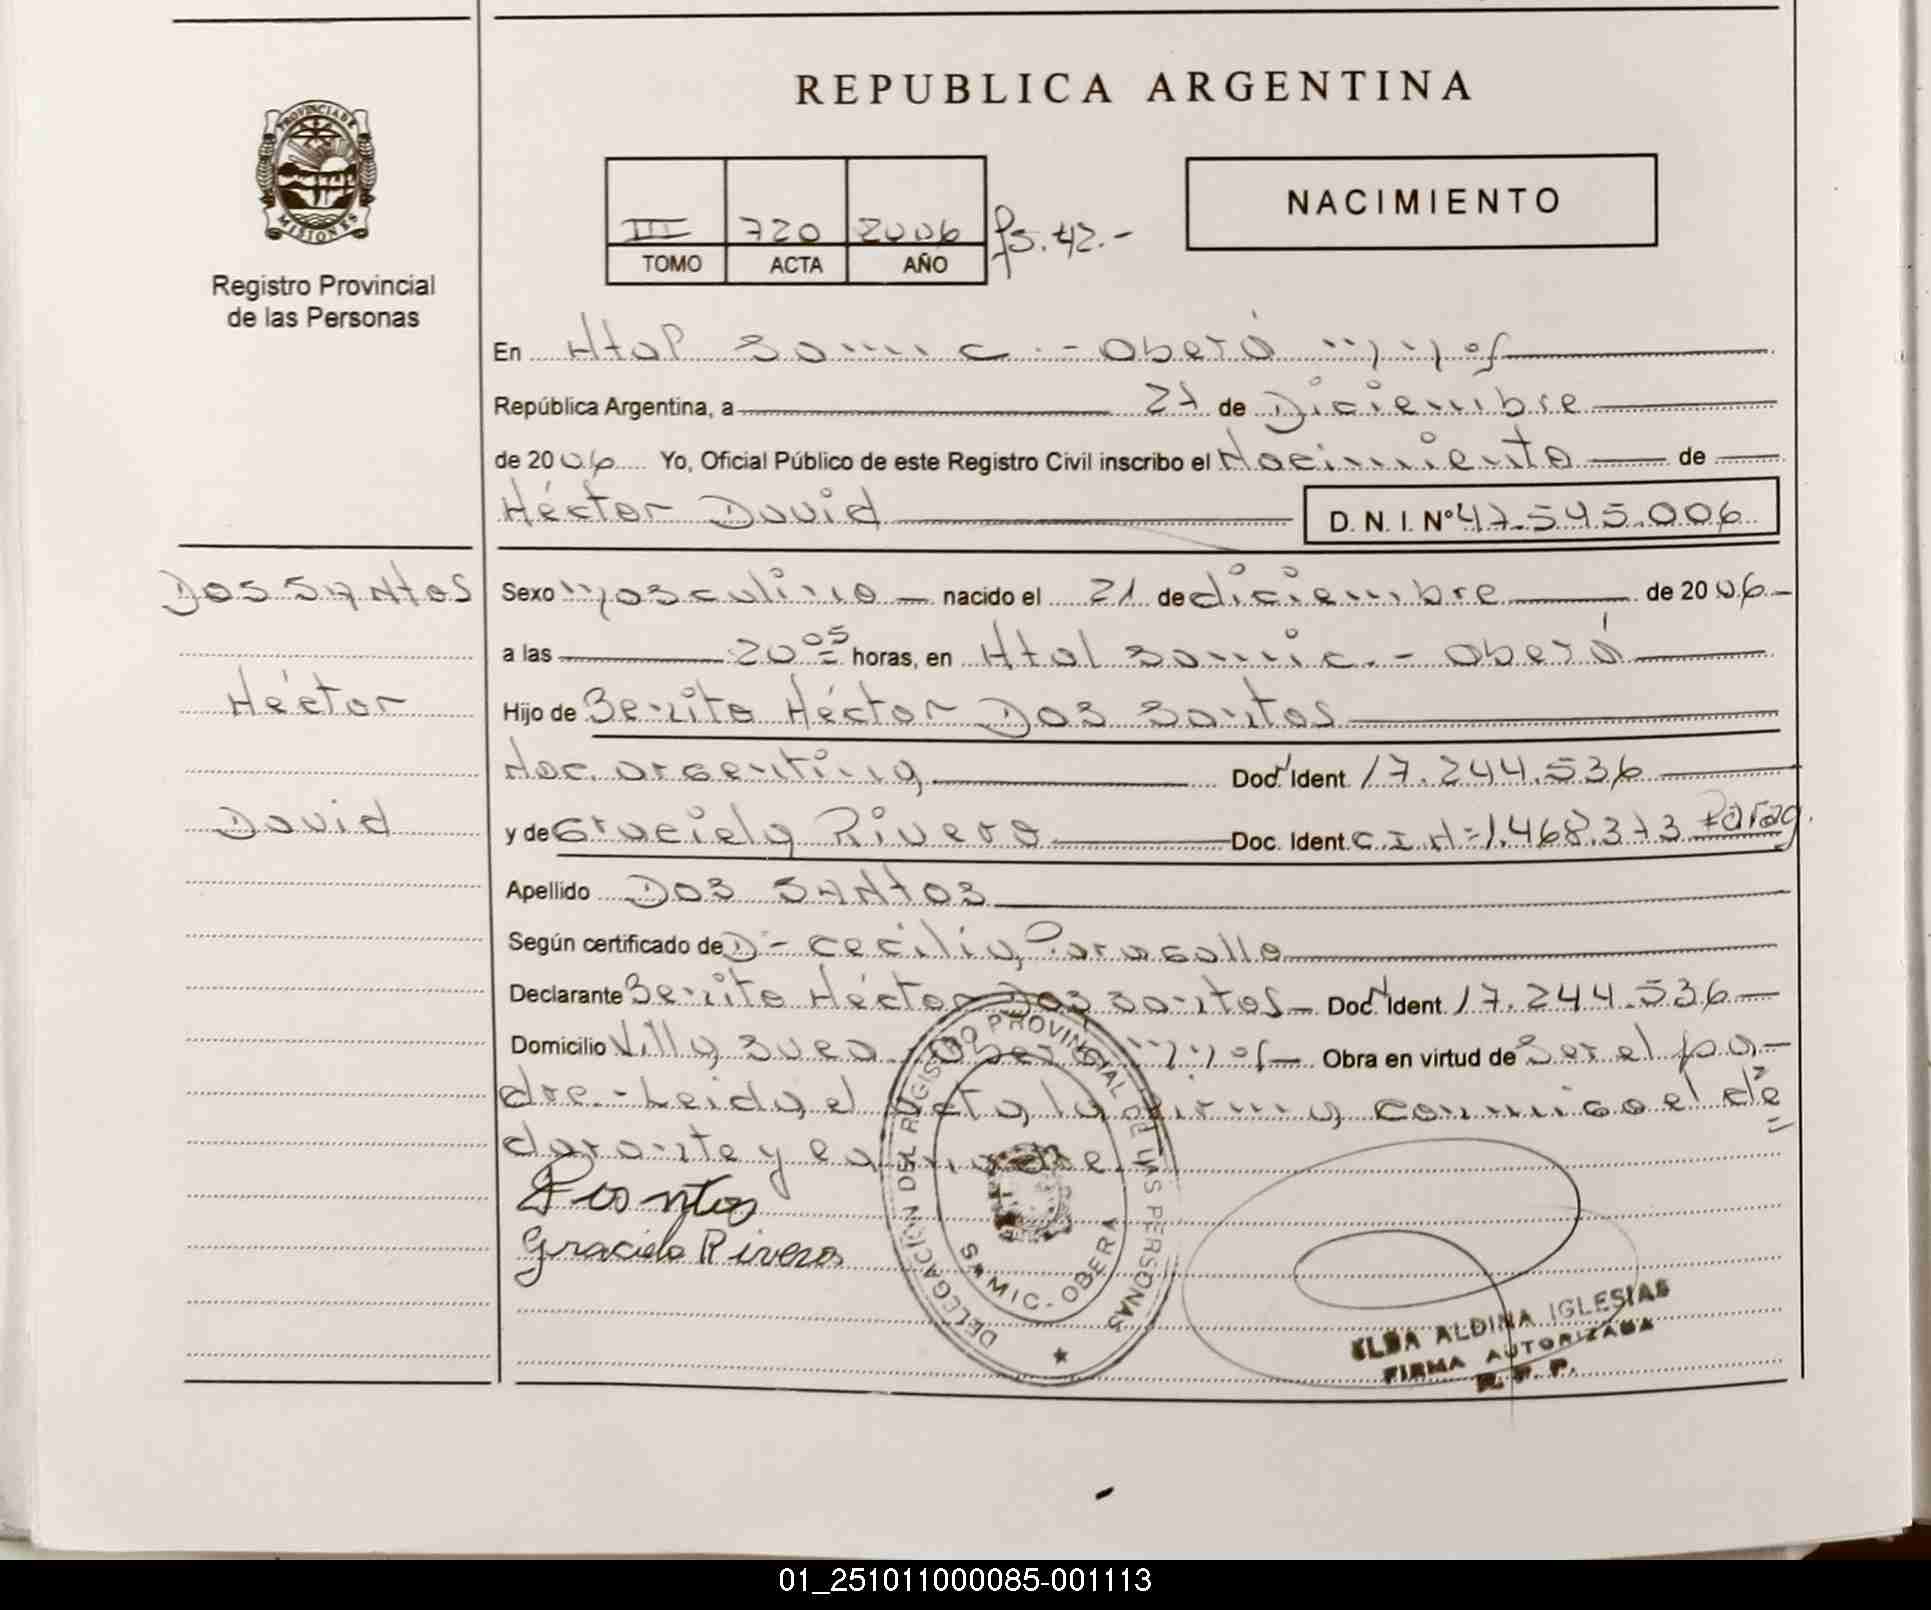 REPUBLICA ARGENTINA
PROVINCIA DE
MISIONES
Registro Provincial
de las Personas
III 720 2006 fs. 42.-
TOMO ACTA AÑO
NACIMIENTO
En Htal Samic.- Oberá Mnes
República Argentina, a 27 de Diciembre
de 2006 Yo, Oficial Público de este Registro Civil inscribo el Nacimiento de
Héctor David D. N. I. Nº 47.545.006
DOS SANtOS
Héctor
David
Sexo Masculino nacido el 21 de diciembre de 2006.-
a las 20 05 horas, en Htal Samic.- Oberá
Hijo de Benito Héctor Dos Santos
Nac. argentina Doc. N Ident. 17.244.536
y de Graciela Rivero Doc. Ident. C.I.N=1.468.373 Parag.
Apellido DOS SANtOS
Según certificado de D- Cecilia
Declarante Benito Héctor Dos Santos- Doc. N Ident. 17.244.536-
Domicilio Villa Oberá Obra en virtud de Ser el pa-
dre.- Leida el acta, la firma conmigo el de=
clarante y la madre.
Graciela Rivero
DELEGACIÓN DEL REGISTRO PROVINCIAL DE LAS PERSONAS
SAMIC - OBERA
ELDA ALDINA IGLESIAS
FIRMA AUTORIZADA
R. P. P.
01_251011000085-001113